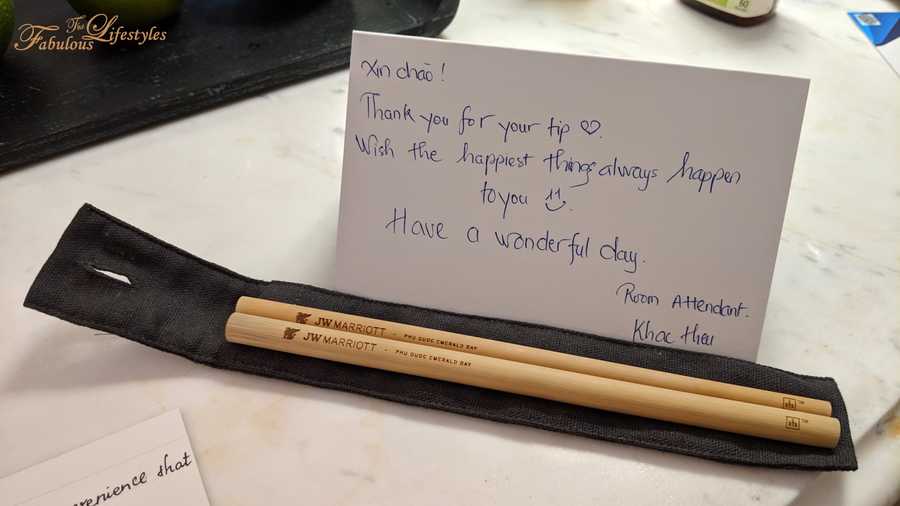 The Fabulous Lifestyles
60
Xin chào!
Thank you for your tip ♡.
Wish the happiest things always happen
to you
Have a wonderful day.
Room Attendant.
Khac
JW MARRIOTT - PHU QUOC EMERALD BAY
JW MARRIOTT - PHU QUOC EMERALD BAY
that